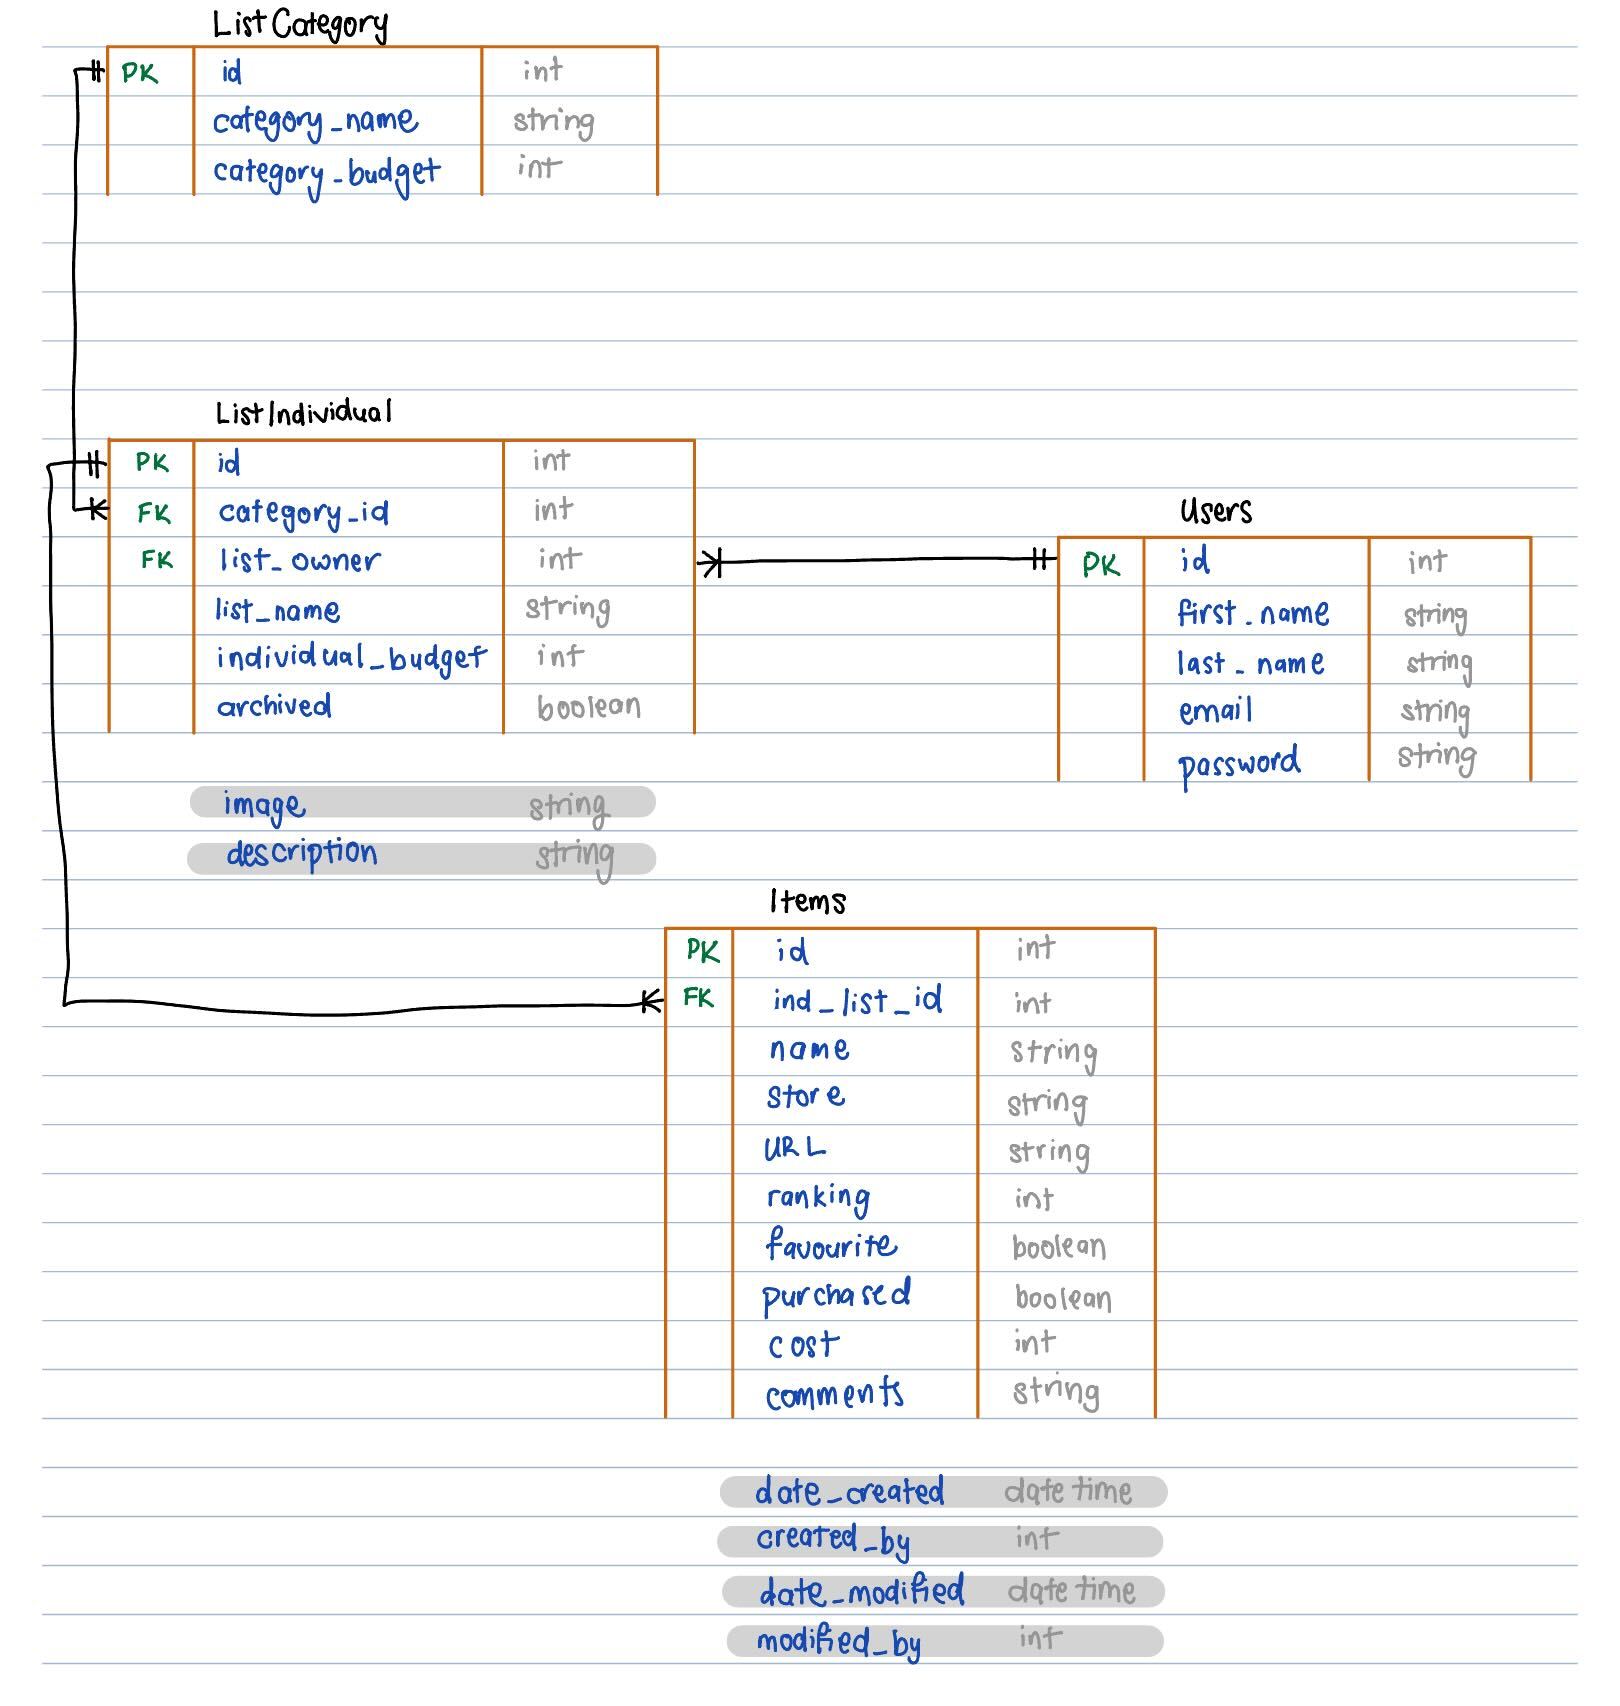 ListCategory
PK id int
category_name string
category_budget int
ListIndividual
PK id int
FK category_id int
FK list_owner int
list_name string
individual_budget int
archived boolean
image string
description string
Users
PK id int
first_name string
last_name string
email string
password string
Items
PK id int
FK ind_list_id int
name string
store string
URL string
ranking int
favourite boolean
purchased boolean
cost int
comments string
date_created datetime
created_by int
date_modified datetime
modified_by int